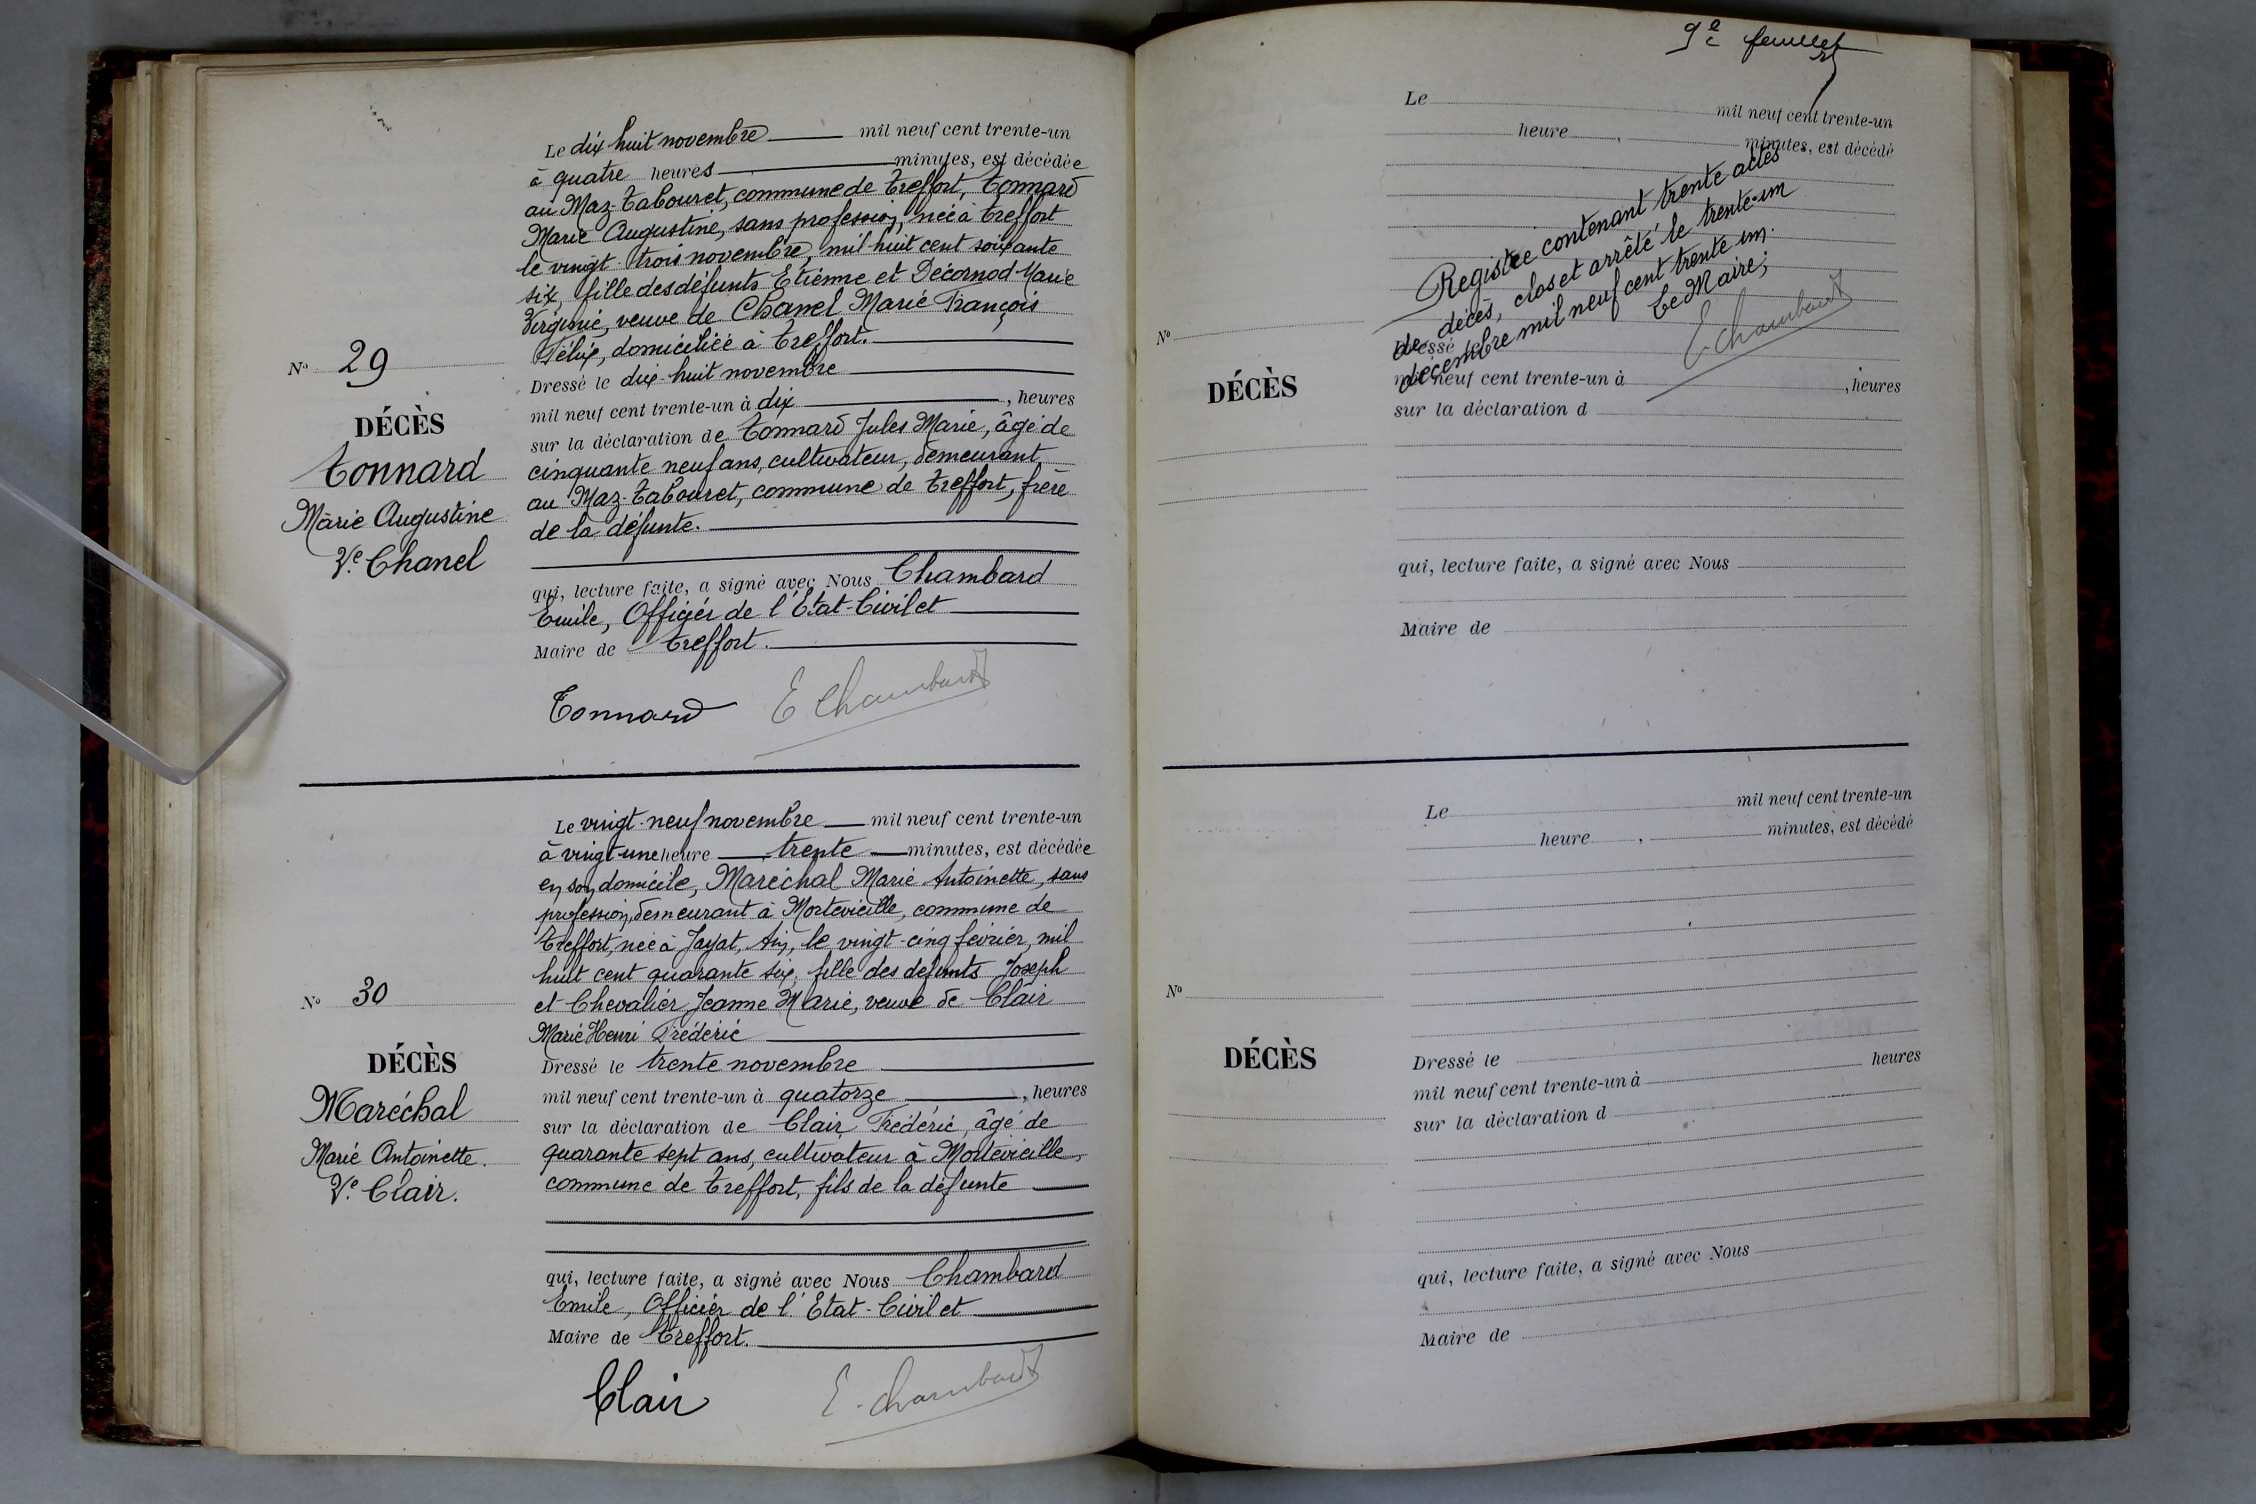 Le dix huit novembre mil neuf cent trente-un
à quatre heures minutes, est décédée
au Maz-Tabouret, commune de Treffort, Tonnard
Marie Augustine, sans profession, née à Treffort
le vingt trois novembre, mil huit cent soixante
six, fille des défunts Etienne et Décornod Marie
Virginie, veuve de Chanel Marie François
Félix, domiciliée à Treffort.
No 29
DÉCÈS
Tonnard
Marie Augustine
Ve Chanel
Dressé le dix-huit novembre
mil neuf cent trente-un à dix , heures
sur la déclaration de Tonnard Jules Marie, âgé de
cinquante neuf ans, cultivateur, demeurant
au Maz-Tabouret, commune de Treffort, frère
de la défunte.
qui, lecture faite, a signé avec Nous Chambard
Emile, Officier de l'État-Civil et
Maire de Treffort.
Tonnard E Chambard
Le vingt-neuf novembre mil neuf cent trente-un
à vingt-une heure , trente minutes, est décédée
en son domicile, Maréchal Marie Antoinette, sans
profession, demeurant à Mortevieille, commune de
Treffort, née à Jayat, Ain, le vingt-cinq février, mil
huit cent quarante six, fille des défunts Joseph
et Chevalier Jeanne Marie, veuve de Clair
Marie Henri Frédéric
No 30
DÉCÈS
Maréchal
Marie Antoinette.
Ve Clair.
Dressé le trente novembre
mil neuf cent trente-un à quatorze , heures
sur la déclaration de Clair Frédéric, âgé de
quarante sept ans, cultivateur à Mortevieille,
commune de Treffort, fils de la défunte
qui, lecture faite, a signé avec Nous Chambard
Emile, Officier de l'Etat-Civil et
Maire de Treffort.
Clair E. Chambard
9e feuillet
Le mil neuf cent trente-un
heure , minutes, est décédé
Registre contenant trente actes
de décès, clos et arrêté le trente-un
décembre mil neuf cent trente un.
Le Maire;
E Chambard
No
DÉCÈS
Dressé le
mil neuf cent trente-un à , heures
sur la déclaration d
qui, lecture faite, a signé avec Nous
Maire de
Le mil neuf cent trente-un
heure , minutes, est décédé
No
DÉCÈS
Dressé le
mil neuf cent trente-un à heures
sur la déclaration d
qui, lecture faite, a signé avec Nous
Maire de